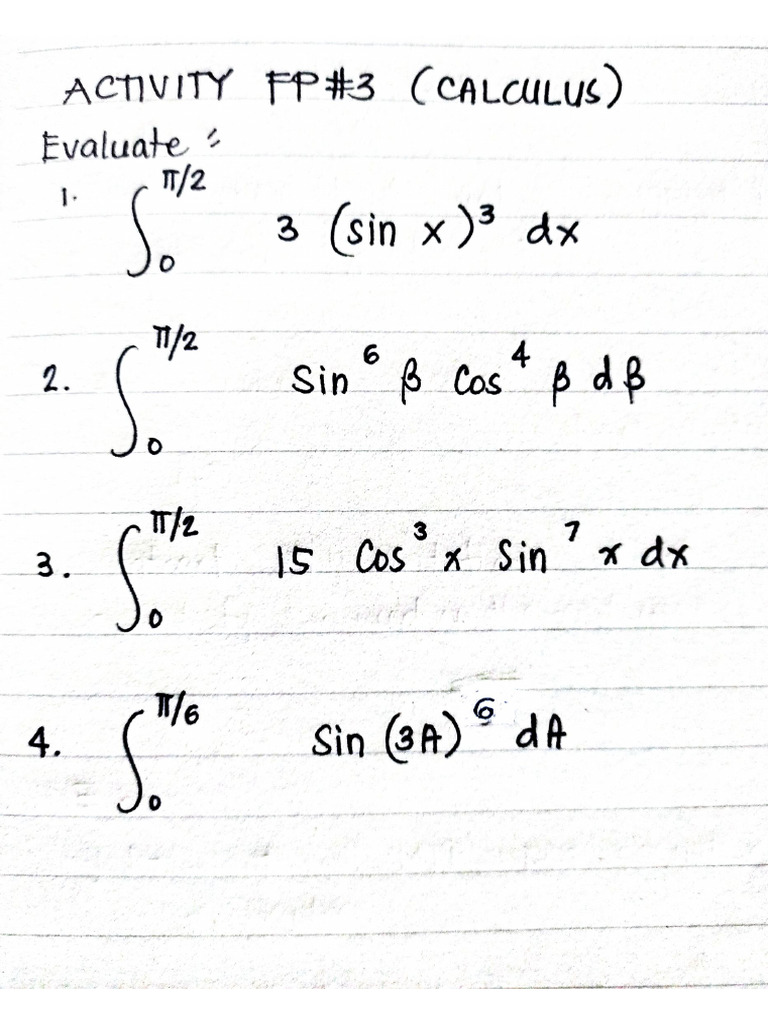 ACTIVITY FP#3 (CALCULUS)
Evaluate :
1. ∫₀^π/2 3 (sin x)³ dx
2. ∫₀^π/2 Sin⁶ β Cos⁴ β dβ
3. ∫₀^π/2 15 Cos³ x Sin⁷ x dx
4. ∫₀^π/6 Sin (3A)⁶ dA